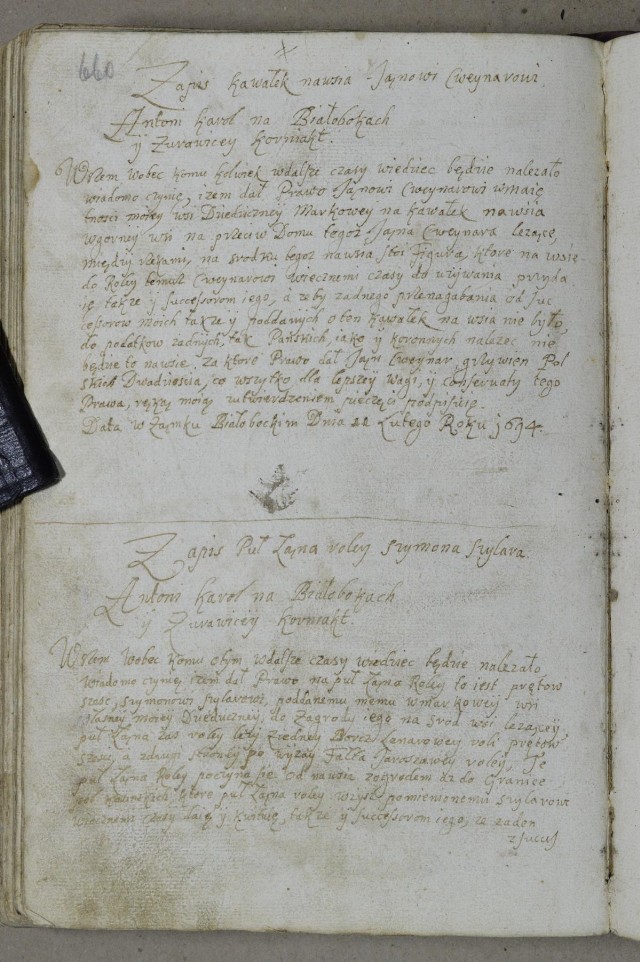 660
Zapis kawałek nawsia Janowi Cweynarowi
Antoni Karol na Białobokach
y Zurawicey Korniakt.
Wszem wobec komu kolwiek wdalsze czasy wiedziec będzie nalezało
wiadomo czynię, izem dał Prawo Janowi Cweynarowi wmaię
tnosci moiey wsi Dziedziczney Markowey na kawałek nawsia
wgorney wsi na przeciw Domu tegoz Jana Cweynara lezące,
między rzekami, na srodku tegoz nawsia stoi Figura, ktore na wsie
do Roley temuz Cweynarowi wiecznemi czasy do uzywania przyda
ię także y successorom iego, a zeby zadnego przenagabania od suc
cessorow moich także y poddanych o ten kawałek na wsia nie było,
do podatkow zadnych, tak Panskich, iako y koronnych nalezec nie
będzie to nawsie. Za ktore Prawo dał Jan Cweynar grzywien Pol
skich Dwadziescia, co wszytko dla lepszey wagi, y conservaty tego
Prawa, ręką moią ztwierdzeniem pieczęci podpisuię.
Data w Zamku Białobockim Dnia 22 Lutego Roku 1694.
Zapis Puł Łana roley Szymona Szylara.
Antoni Karol na Białobokach
y Zurawicey Korniakt.
Wszem Wobec Komu o tym wdalsze czasy wiedziec będzie nalezało
wiadomo czynię izem dał Prawo na puł Łana Roley to iest prętow
szesc, Szymonowi Szylarowi, poddanemu memu wmarkowey wsi
własney moiey Dziedziczney, do Zagrody iego na srod wsi lezącey,
puł Łana zas roley lezy ziedney Lenarowey roli prętow
szesc, a zdrugi strony po wyzay Falta Jaroszawey roley, Te
puł Łana Roley poczyna się od nawsia zogrodem az do Granice
ktore puł Łana roley wzysz pomienionemu Szylarowi
wiecznemi czasy daię y także y successorom iego, ze zaden
z succes